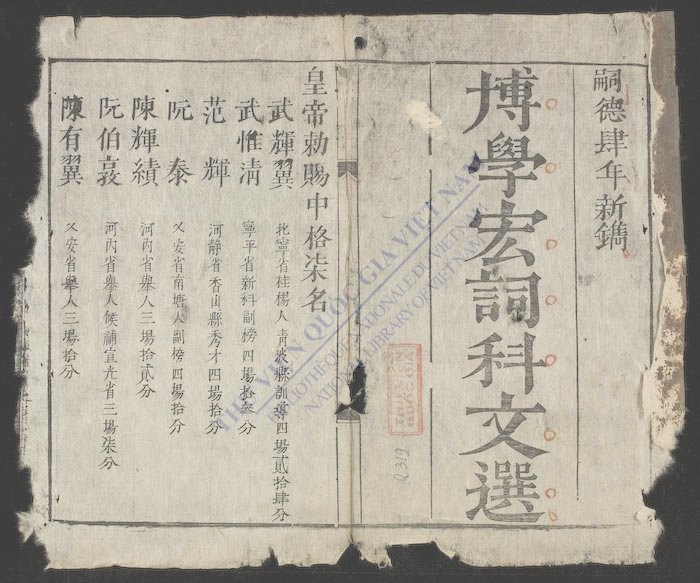 嗣德肆年新鐫
博學宏詞科文選
皇帝勅賜中格柒名
武輝翼 北寧省桂楊人青波縣訓導四場貳拾肆分
武惟清 寧平省新科副榜四場拾叁分
范輝 河静省香山縣秀才四場拾分
阮泰 乂安省南塘人副榜四場拾分
陳輝績 河內省舉人三場拾貳分
阮伯 河內省舉人候補宣光省三場柒分
陳有翼 乂安省舉人三場拾分
THƯ VIỆN QUỐC GIA VIỆT NAM
BIBLIOTHÈQUE NATIONALE DU VIETNAM
NATIONAL LIBRARY OF VIETNAM
THƯ VIỆN
QUỐC GIA
R.319